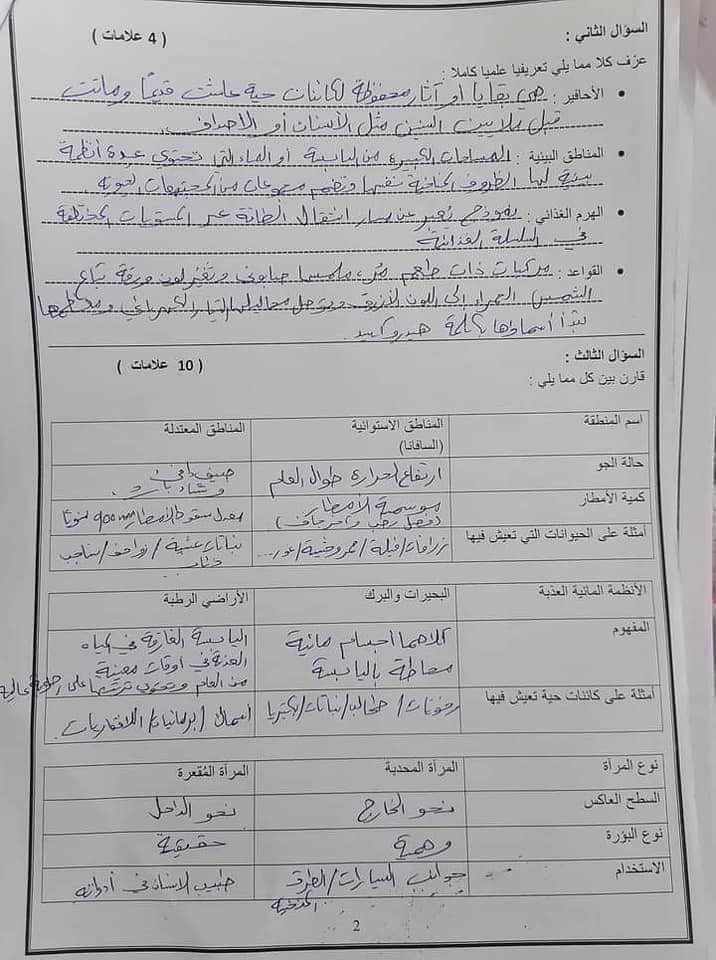 السؤال الثاني : ( 4 علامات )
عرف كلا مما يلي تعريفيا علميا كاملا :
• الأحافير : هي بقايا أو آثار محفوظة لكائنات حية عاشت قديمًا وماتت
قبل ملايين السنين مثل الأسنان أو الأصداف.
• المناطق البيئية : المساحات الكبيرة من اليابسة أو الماء التي تحتوي عدة أنظمة
بيئية لها الظروف المناخية نفسها وتضم مجموعات من المجتمعات الحيوية
• الهرم الغذائي : نموذج يُعبر عن مسار انتقال الطاقة عبر المستويات المختلفة
في السلسلة الغذائية
• القواعد : مركبات ذات طعم مُر، ملمسها صابوني وتغير لون ورقة تباع
الشمس الحمراء إلى اللون الأزرق وتوصل محاليلها التيار الكهربائي ومعظمها
تبدأ أسماؤها بكلمة هيدروكسيد.
السؤال الثالث : ( 10 علامات )
قارن بين كل مما يلي :
اسم المنطقة المناطق الاستوائية (السافانا) المناطق المعتدلة
حالة الجو ارتفاع الحرارة طوال العام صيف دافئ وشتاء بارد.
كمية الأمطار موسمية الأمطار (فصل رطب وآخر جاف) معدل سقوط الأمطار سنويًا
أمثلة على الحيوانات التي تعيش فيها زرافات/فيلة/حمر وحشية/ نباتات عشبية / زواحف/سناجب
الأنظمة المائية العذبة البحيرات والبرك الأراضي الرطبة
المفهوم كلاهما أجسام مائية محاطة باليابسة اليابسة الغارقة في المياه العذبة في أوقات معينة من العام وتحتوي تربتها على رطوبة عالية
أمثلة على كائنات حية تعيش فيها طحالب/نباتات/بكتيريا أسماك /برمائيات/ اللافقاريات.
نوع المرآة المرآة المحدبة المرآة المُقعرة
السطح العاكس نحو الخارج نحو الداخل
نوع البؤرة وهمية حقيقية
الاستخدام جوانب السيارات/الطرق طبيب الأسنان في أدواته
2